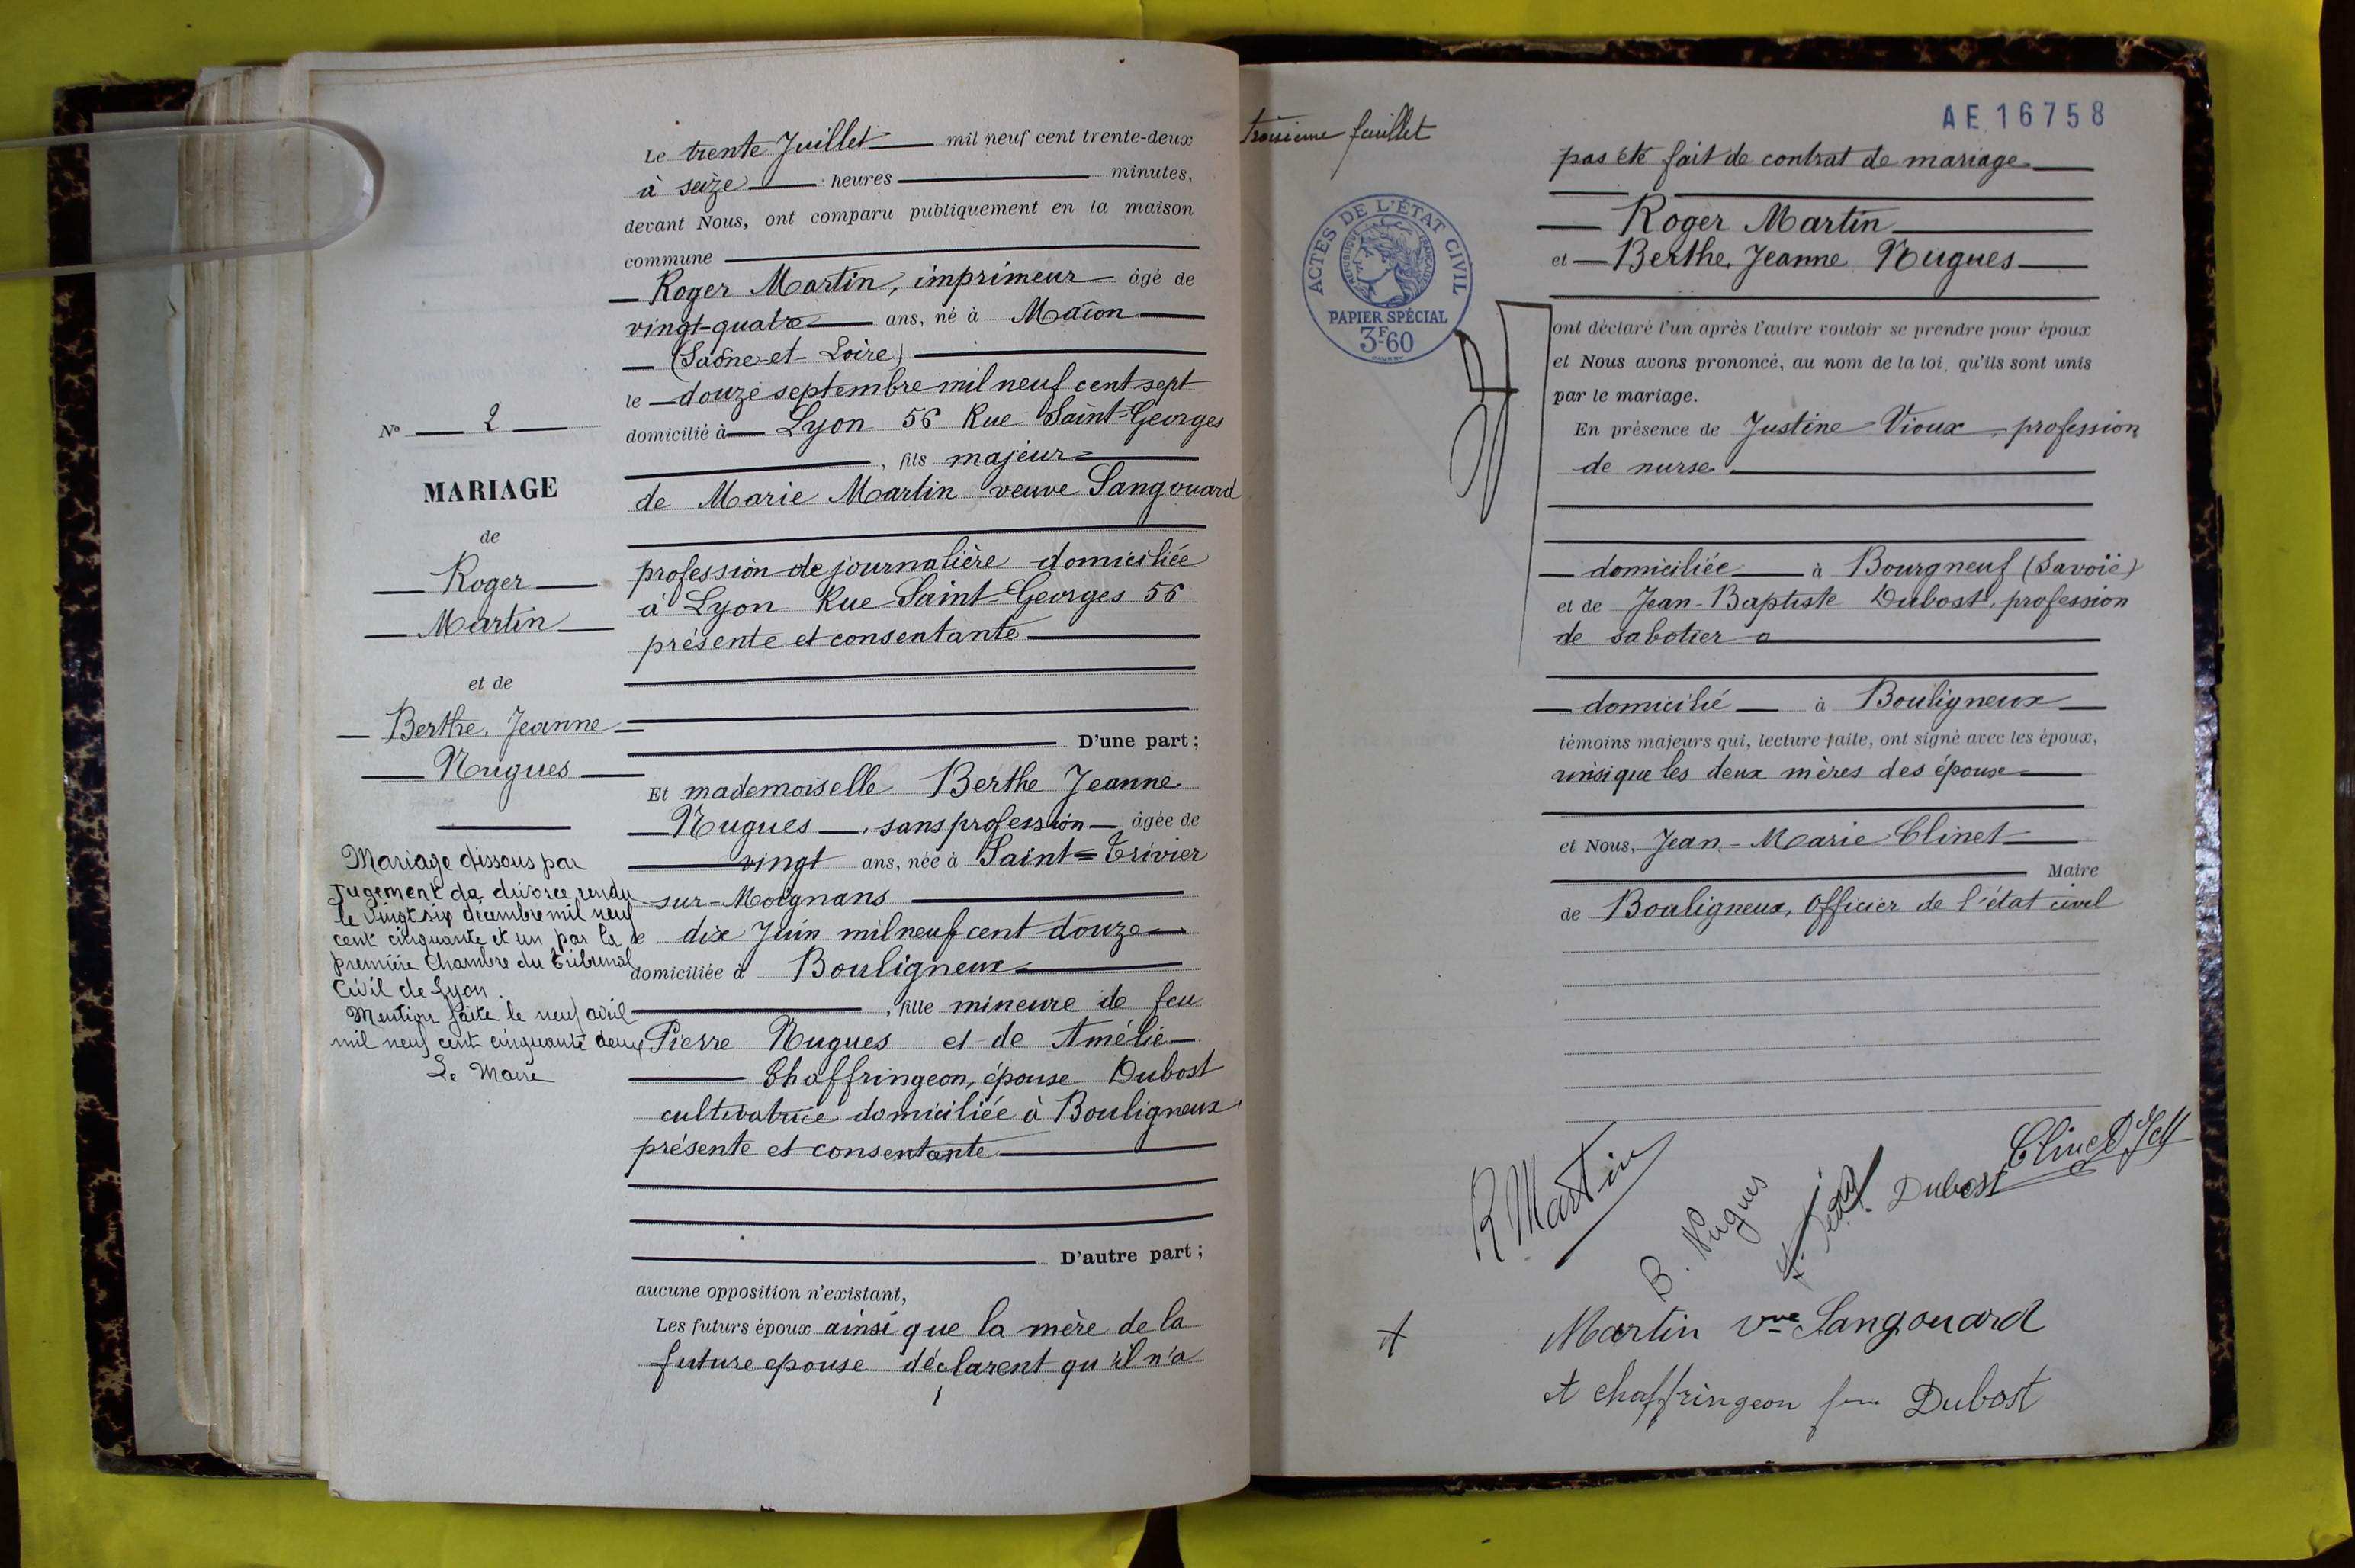 Le trente Juillet mil neuf cent trente-deux
à seize heures minutes,
devant Nous, ont comparu publiquement en la maison
commune
Roger Martin, imprimeur âgé de
vingt-quatre ans, né à Mâcon
(Saône-et-Loire)
le douze septembre mil neuf cent sept
domicilié à Lyon 56 Rue Saint-Georges
, fils majeur
de Marie Martin veuve Sangouard
profession de journalière domiciliée
à Lyon Rue Saint-Georges 56
présente et consentante
D'une part ;
Et mademoiselle Berthe Jeanne
Nugues, sans profession âgée de
vingt ans, née à Saint-Trivier
sur-Moignans
le dix Juin mil neuf cent douze
domiciliée à Bouligneux
, fille mineure de feu
Pierre Nugues et de Amélie
Chaffringeon, épouse Dubost
cultivatrice domiciliée à Bouligneux
présente et consentante
D'autre part ;
aucune opposition n'existant,
Les futurs époux ainsi que la mère de la
future epouse déclarent qu'il n'a
No 2
MARIAGE
de
Roger
Martin
et de
Berthe, Jeanne
Nugues
Mariage dissous par
Jugement de divorce rendu
le vingt six décembre mil neuf
cent cinquante et un par la
première Chambre du Tribunal
Civil de Lyon.
Mention faite le neuf avril
mil neuf cent cinquante deux
Le Maire
troisième feuillet
AE 16758
ACTES DE L'ÉTAT CIVIL
RÉPUBLIQUE FRANÇAISE
PAPIER SPÉCIAL
3F60
pas été fait de contrat de mariage
Roger Martin
et Berthe, Jeanne Nugues
ont déclaré l'un après l'autre vouloir se prendre pour époux
et Nous avons prononcé, au nom de la loi, qu'ils sont unis
par le mariage.
En présence de Justine Vioux, profession
de nurse
domiciliée à Bourgneuf (Savoie)
et de Jean-Baptiste Dubost, profession
de sabotier
domicilié à Bouligneux
témoins majeurs qui, lecture faite, ont signé avec les époux,
ainsi que les deux mères des épouse
et Nous, Jean-Marie Clinet
Maire
de Bouligneux, Officier de l'état civil
R Martin
B. Nugues
Dubost
Clinet
Martin vve Sangouard
A chaffringeon Dubost